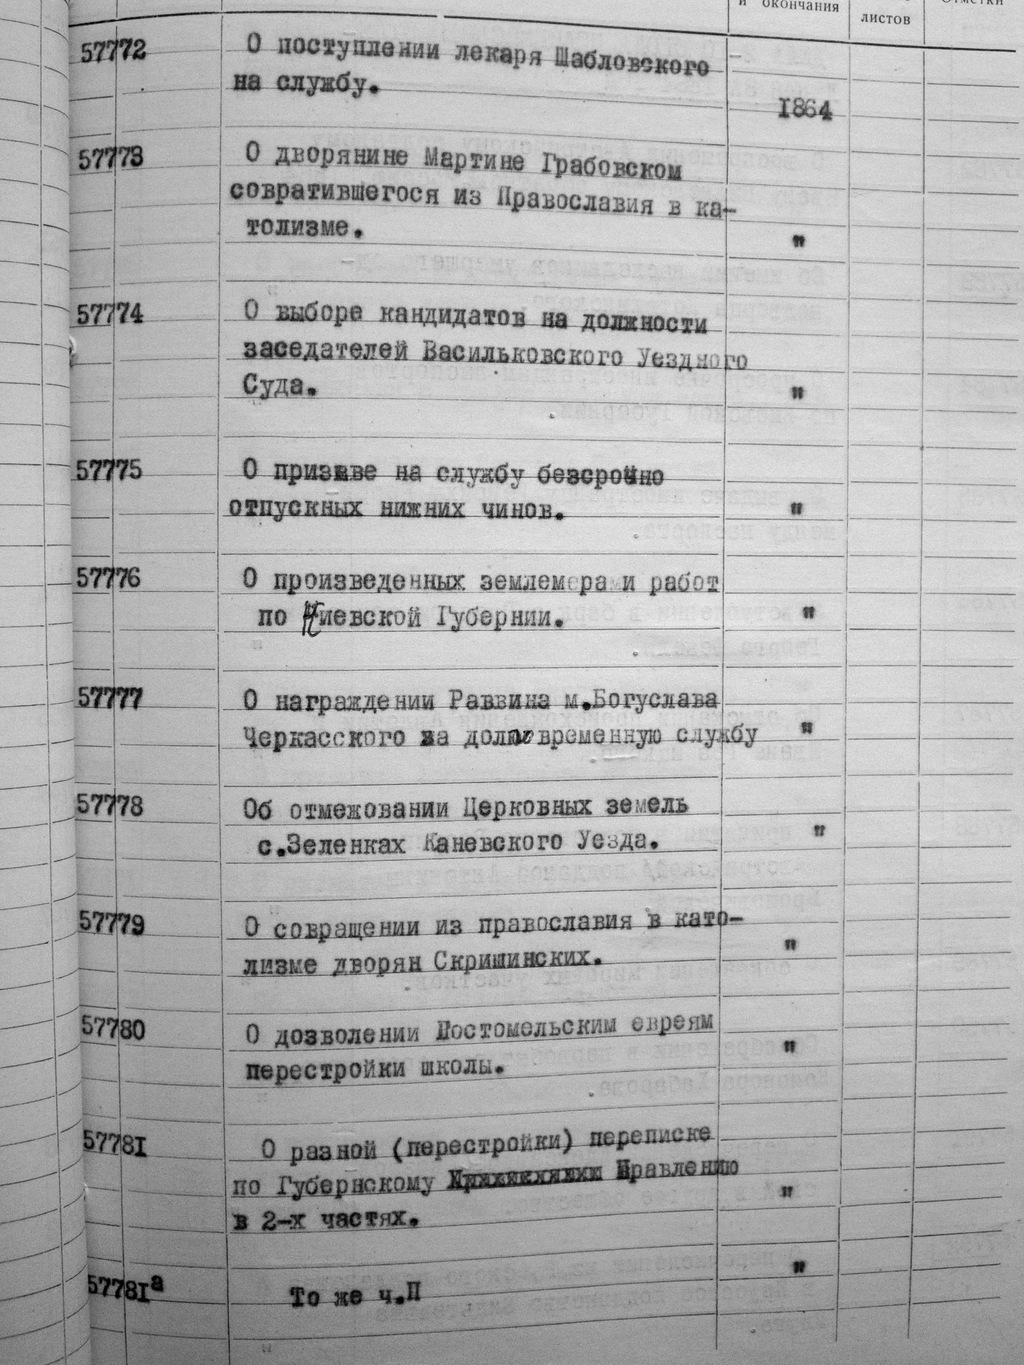 и окончания
листов
Отметки
57772 О поступлении лекаря Шабловского
на службу.
1864
57773 О дворянине Мартине Грабовском
совратившегося из Православия в ка-
толизме. "
57774 О выборе кандидатов на должности
заседателей Васильковского Уездного
Суда. "
57775 О призыве на службу безсройно
отпускных нижних чинов. "
57776 О произведенных землемера и работ
по Киевской Губернии. "
57777 О награждении Раввина м.Богуслава
Черкасского за долговременную службу "
57778 Об отмежовании Церковных земель
с.Зеленках Каневского Уезда. "
57779 О совращении из православия в като-
лизме дворян Скришинских. "
57780 О дозволении Постомельским евреям
перестройки школы. "
57781 О разной (перестройки) переписке
по Губернскому Правлению
в 2-х частях. "
57781а То же ч.П "